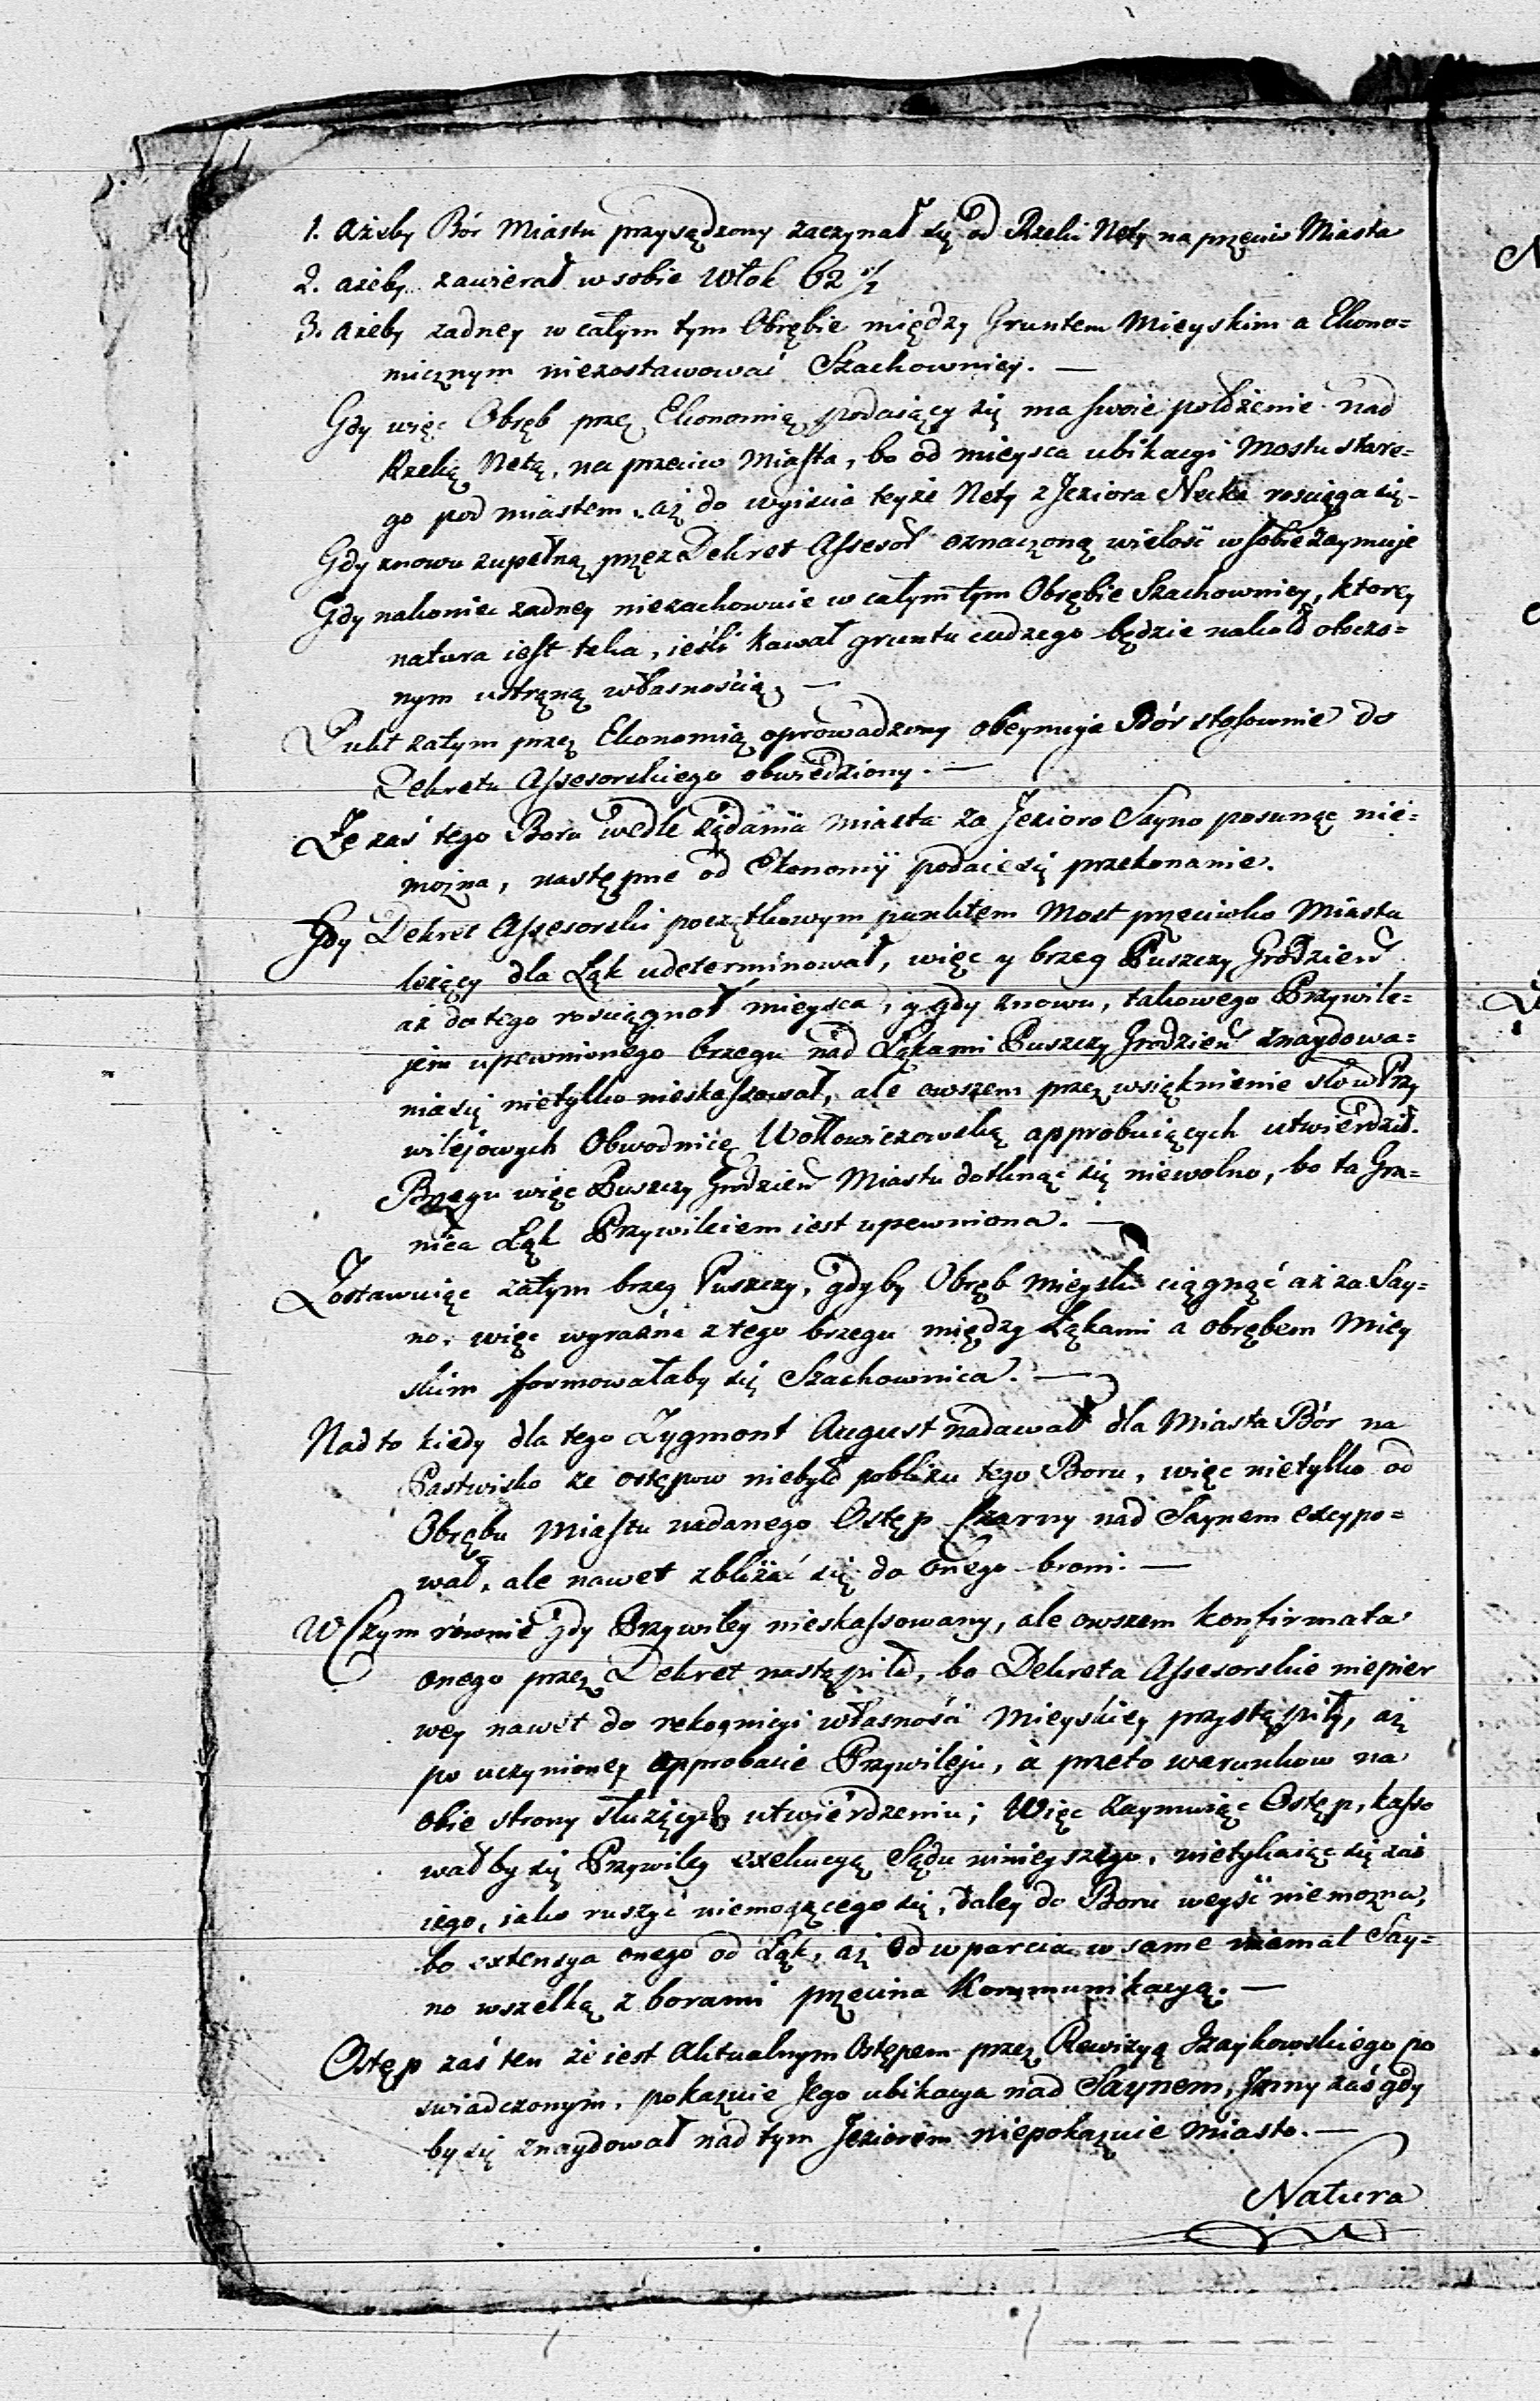 1. ażeby Bór Miastu przysądzony zaczynał się od Rzeki Nety na przeciw Miasta
2. ażeby zawierał w sobie Włok 62 1/2
3. ażeby zadney w całym tym Obrębie między Gruntem Mieyskim a Ekono=
micznym niezostawować Szachownicy. —
Gdy więc Obręb przez Ekonomią podaiący się ma swoie położenie nad
Rzeką Netą, na przeciw Miasta, bo od mieysca ubikacyi Mostu stare=
go pod miastem, aż do wyiścia teyże Nety z Jeziora Necka rosciąga się -
Gdy znowu zupełną przez Dekret Assesor oznaczoną wielość w sobie zaymuie
Gdy nakoniec zadney niezachowuie w całym tym Obrębie Szachownicy, ktorey
natura iest taka, ieśli kawał gruntu cudzego będzie nakoło otoczo=
nym ustroną własnością. —
Dukt zatym przez Ekonomią oprowadzony obeymuje Bór stosownie do
Dekretu Assesorskiego obwiedziony. —
Że zaś tego Boru wedle żądania Miasta za Jezioro Sayno posunąć nie=
można, następne od Ekonomij podaie się przekonanie.
Gdy Dekret Assesorski początkowym punktem Most przeciwko Miasta
leżący dla Łąk udeterminował, więc y brzeg Puszczy Grodzień
aż do tego rosciągnoł mieysca, y gdy znowu, takowego Przywile=
jem upewnionego brzegu nad Łąkami Puszczy Grodzień znaydowa=
nia się nietylko nieskassował, ale owszem przez wsięknienie słow Przy
wilejowych Obwodnicę Wołłowiczowską approbuiących utwierdził.
Brzegu więc Puszczy Grodzień Miastu dotknąć się niewolno, bo ta Gra=
nica Łąk Przywileiem iest upewniona. —
Zostawuiąc zatym brzeg Puszczy, gdyby Obręb Mieyski ciągnąć aż za Say=
no, więc wyraźna z tego brzegu między Łąkami a obrębem Miey
skim formowałaby się Szachownica. —
Nadto kiedy dla tego Zygmont August nadawał dla Miasta Bór na
Pastwisko że ostępow niebyło poblizu tego Boru, więc nietylko od
Obrębu Miastu nadanego Ostęp Czarny nad Saynem excypo=
wał, ale nawet zbliżać się do onego broni. —
W Czym rownie gdy Przywiley nieskassowany, ale owszem konfirmata
onego przez Dekret nastąpiła, bo Dekreta Assesorskie niepier
wey nawet do rekognicyi własności Mieyskiey przystąpiły, aż
po uczynioney approbacie Przywileju, a przeto warunkow na
obie strony służących utwierdzeniu; Więc zaymuiąc Ostęp, kasso
wałby się Przywiley exekucyą Sądu ninieyszego, nietykaiąc się zaś
iego, iako ruszyć niemogącego się, daley do Boru weyść niemożna,
bo extensya onego od Łąk, aż od wparcia w same niemal Say=
no wszelką z borami przecina Kommunikacyą. —
Ostęp zaś ten że iest Aktualnym Ostępem przez Rewizyą Izaykowskiego po
swiadczonym, pokazuie Jego ubikacya nad Saynem, Inny zaś gdy
by się znaydował nad tym Jeziorem niepokazuie Miasto. —
Natura